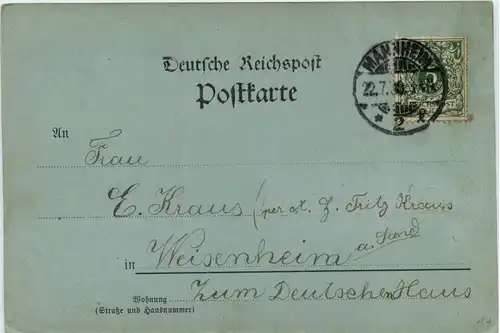 Deutsche Reichspost
Postkarte
MANNHEIM
22.7.
2
5
An
Frau
E. Kraus (per a. Z. Fritz Kraus
in Weisenheim a. Sand
Wohnung Zum Deutschen Haus
(Straße und Hausnummer)